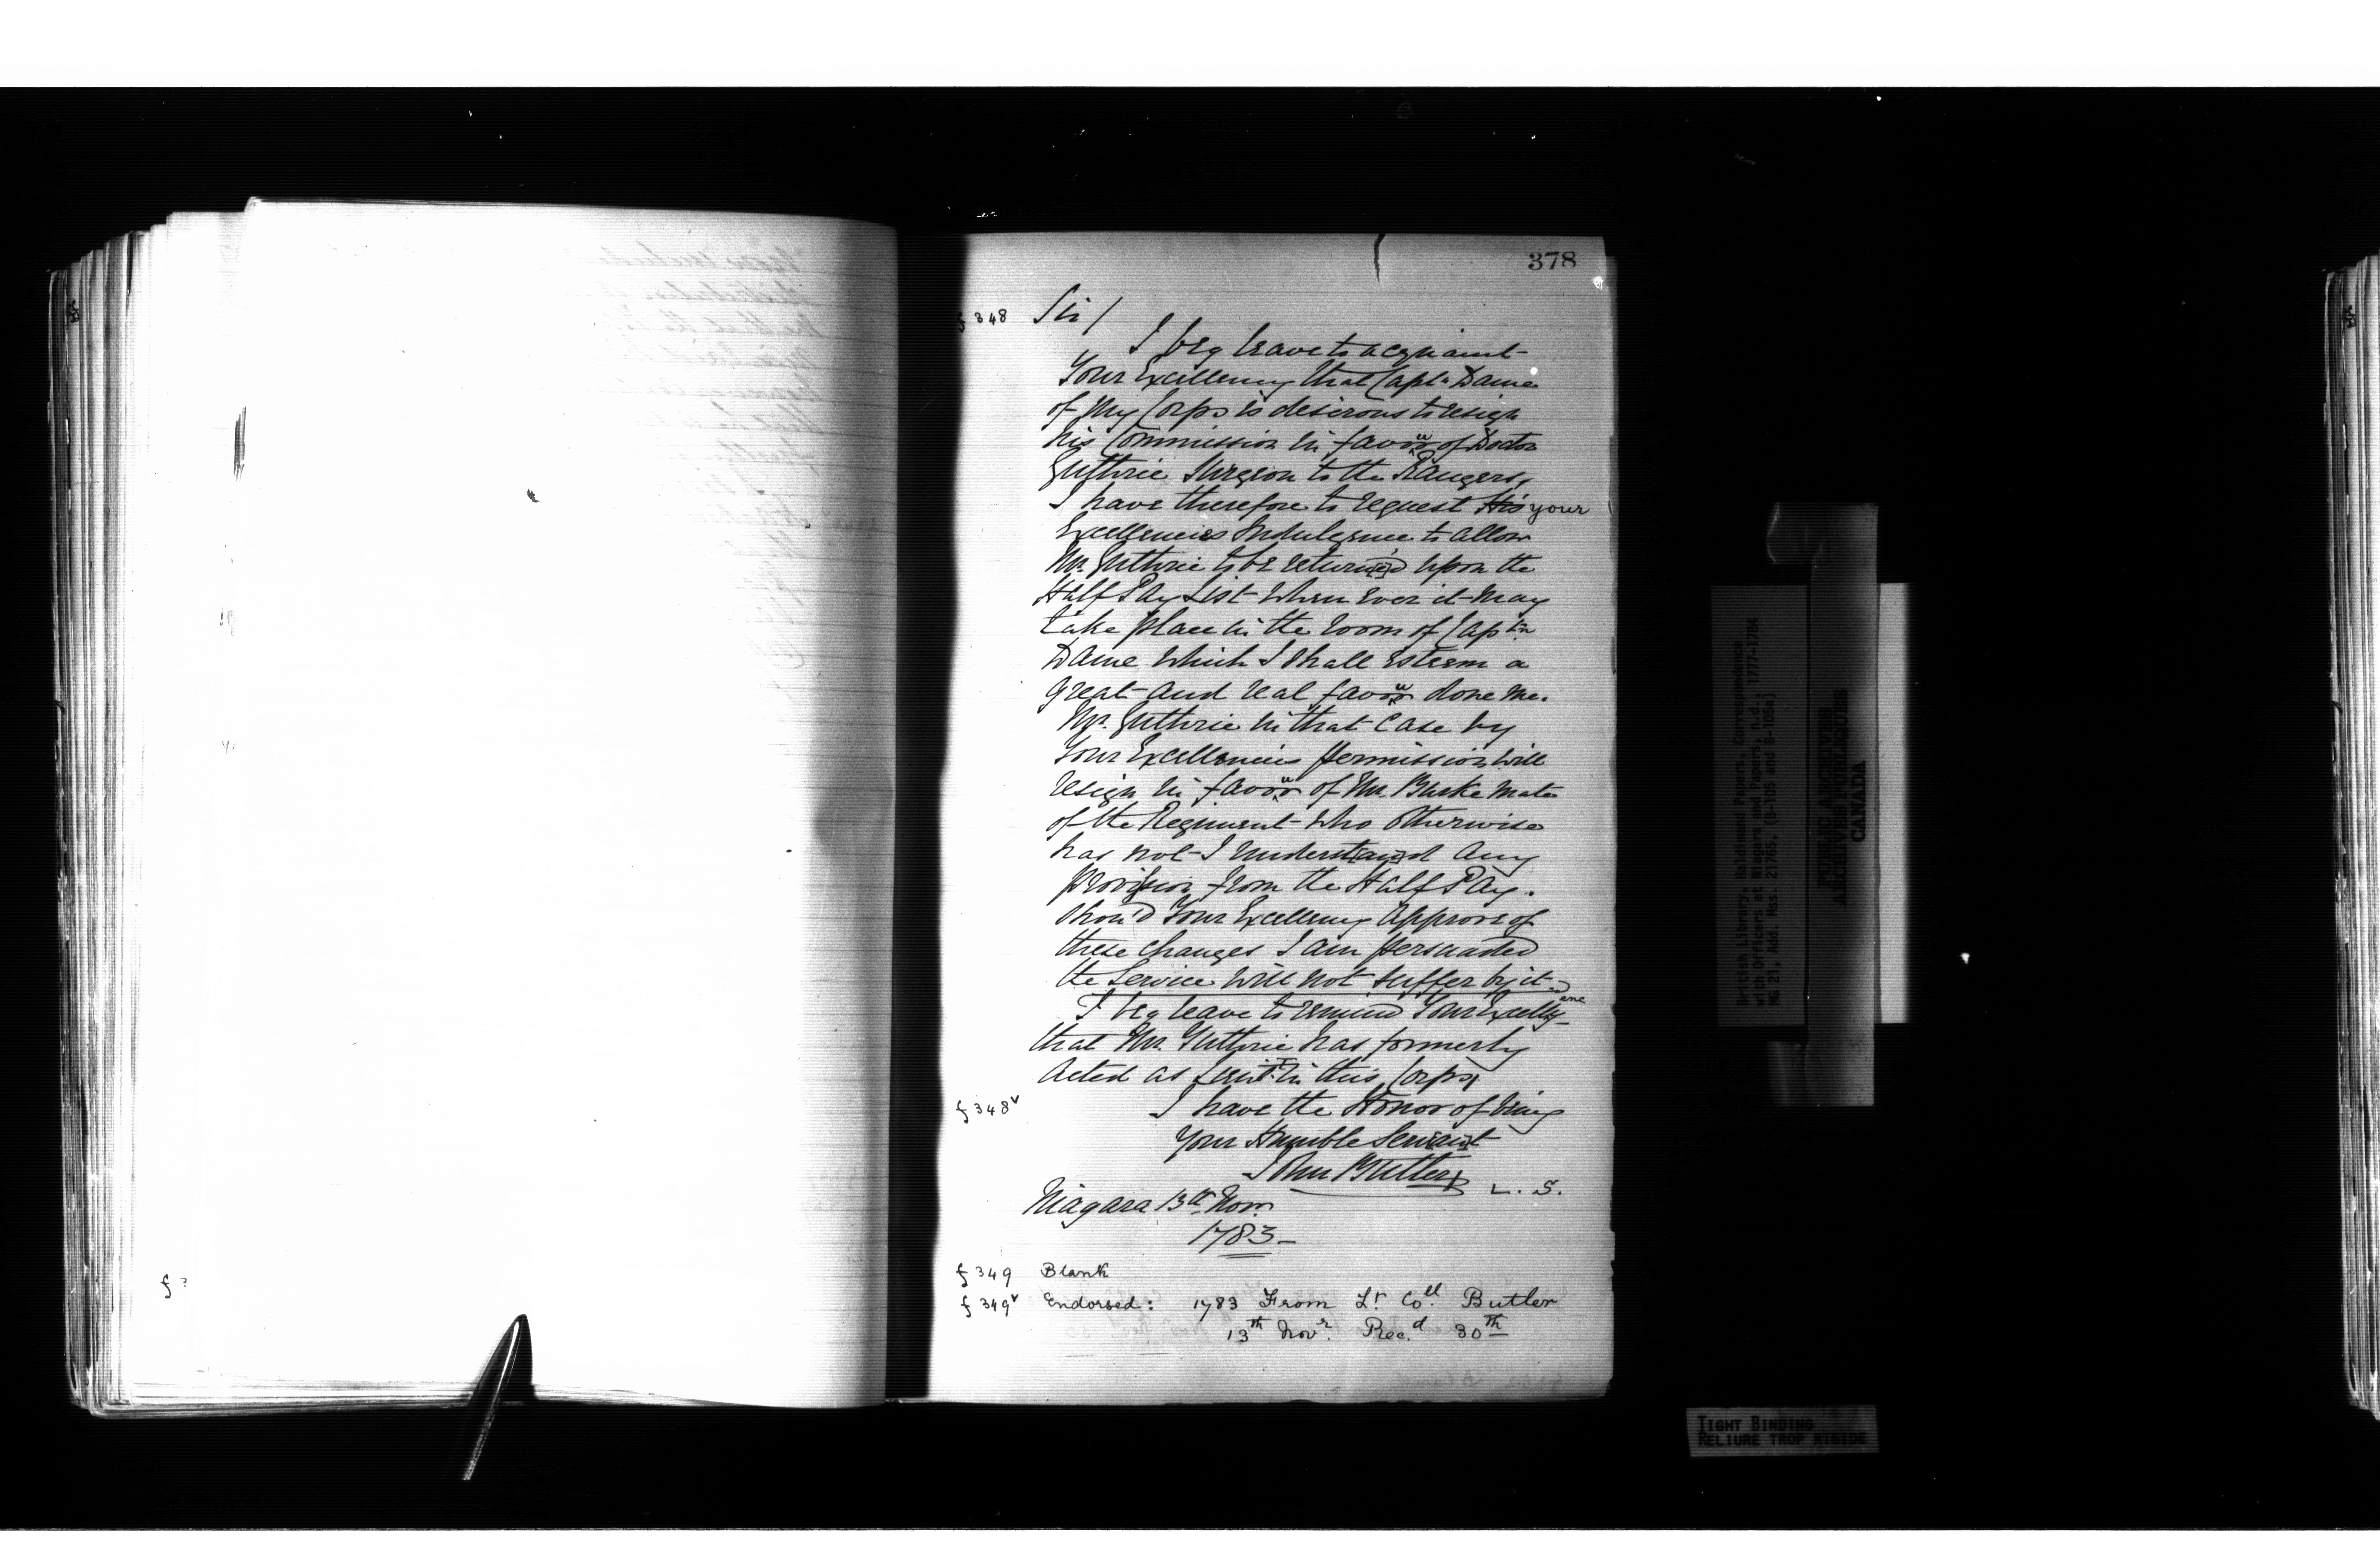 378
f 348 Sir/
I beg leave to acquaint
Your Excellency that Capt. Dame
of My Corps is desirous to resign
his Commission in favour of Doctor
Guthrie Surgeon to the Rangers,
I have therefore to request His your
Excellencies Indulgence to allow
Mr. Guthrie to be return[e]d upon the
Half Pay List when ever it may
take place in the room of Captn
Dame which I shall esteem a
great and real favour done me.
Mr. Guthrie in that Case by
Your Excellencies permission will
resign in favour of Mr. Burke Mate
of the Regiment who otherwise
has not I underst[an]d any
provision from the Half Pay.
Shou'd Your Excellency Approve of
these changes I am persuaded
the Service will not suffer by it and
I beg leave to remind Your Excelly
that Mr. Guthrie has formerly
Acted as Lieut. in this Corps,
f 348v I have the Honor of being
Your Humble Serv[an]t
John Butler L. S.
Niagara 13th Novr.
1783
f 349 Blank
f 349v Endorsed: 1783 From Lt. Coll. Butler
13th Novr. Rec.d 30th
f
British Library, Haldimand Papers, Correspondence
with Officers at Niagara and Papers, n.d., 1777-1784
MG 21, Add. Mss. 21765, (B-105 and B-105a)
PUBLIC ARCHIVES
ARCHIVES PUBLIQUES
CANADA
TIGHT BINDING
RELIURE TROP RIGIDE